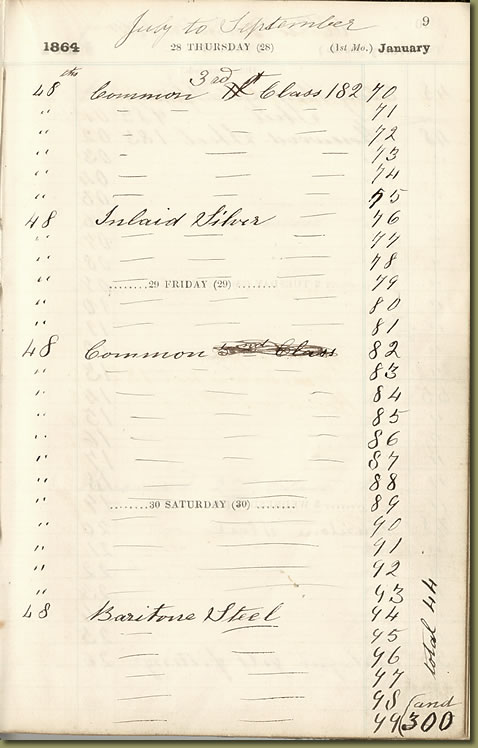 July to September
9
1864 28 THURSDAY (28) (1st Mo.) January
48 ths Common 3rd Class 182 70
" — — — 71
" — — — 72
" — — — 73
" — — — 74
" — — — 75
48 Inlaid Silver 76
" — — — 77
" — — — 78
" ........29 FRIDAY (29)........ 79
" — — — 80
" — — — 81
48 Common 3rd Class 82
" — — — 83
" — — — 84
" — — — 85
" — — — 86
" — — — 87
" — — — 88
" ........30 SATURDAY (30)........ 89
" — — — 90
" — — — 91
" — — — 92
" — — — 93
48 Baritone Steel 94
— — — 95
— — — 96
— — — 97
— — — 98
— — — 99 (and 300
total 44